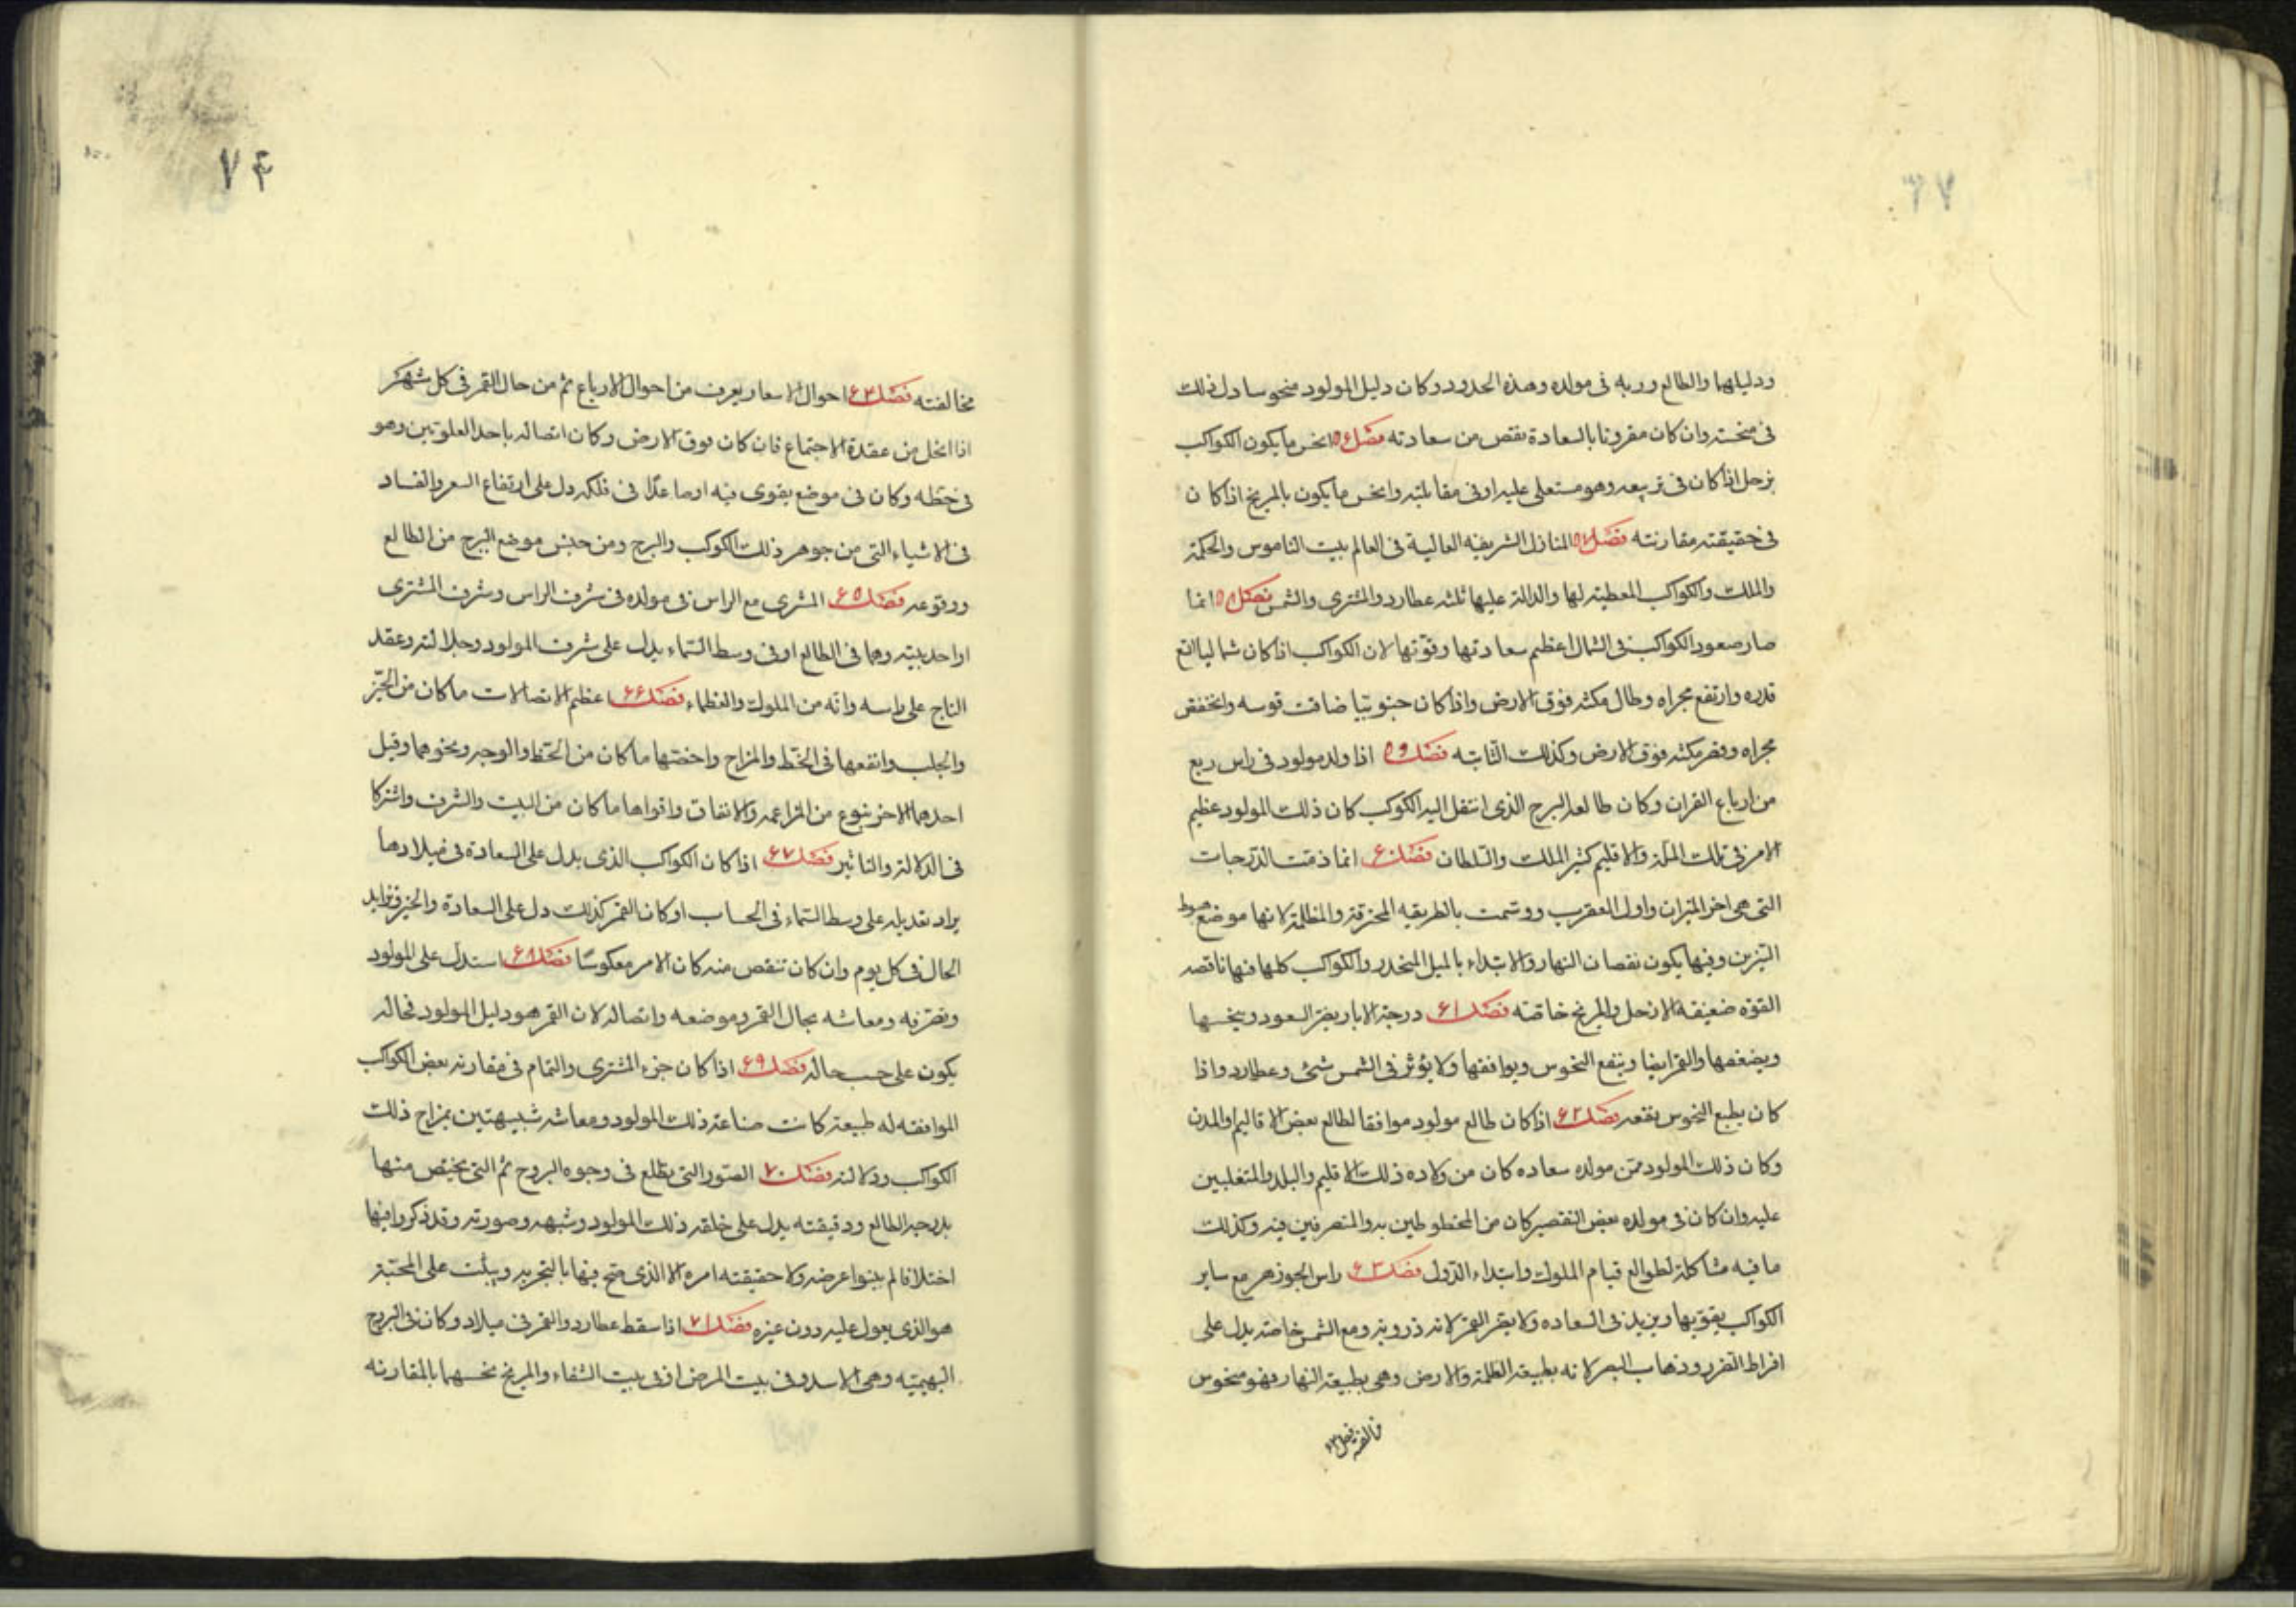 ودليلها والطالع وربه فى مولده وهذه الحدود وكان دليل المولود منحوسا دل ذلك
فى منحسته وان كان مقرونا بالسعادة نقص من سعادته فصل ۵۶ انحس ما يكون الكواكب
بزحل اذا كان فى تربيعه وهو مستعلى عليه او فى مقابلته وانحس ما يكون بالمريخ اذا كان
فى حقيقته مقارنته فصل ۵۷ المنازل الشريفه العالية فى العالم بيت الناموس والحكمة
والملك والكواكب المعطيه لها والدالة عليها ثلثه عطارد والمشترى والشمس فصل ۵۸ انما
صار صعود الكواكب فى الشمال اعظم سعادتها وقوتها لان الكواكب اذا كان شماليا اتع
قدره وارتفع مجراه وطال مكثه فوق الارض واذا كان جنوبيا ضاقت قوسه وانخفض
مجراه وقصر مكثه فوق الارض وكذلك الثابته فصل ۵۹ اذا ولد مولود فى راس ربع
من ارباع القران وكان طالعه البرج الذى انتقل اليه الكوكب كان ذلك المولود عظيم
الامر فى تلك الملة والاقليم كثير الملك والسلطان فصل ۶۰ انما ذمت الدرجات
التى هى اخر الميزان واول العقرب ووسمت بالطريقه المحترقة والمظلمة لانها موضع هبوط
النيرين وفيها يكون نقصان النهار والابتداء بالميل المنحدر والكواكب كلها فيها ناقصه
القوه ضعيفة الا زحل والمريخ خاصته فصل ۶۱ درجة الابار يضر السعود وينحسها
ويضعفها والقمر ايضا وينفع النحوس ويوافقها ولا يؤثر فى الشمس شئ وعطارد واذا
كان بطبع النحوس نفعه فصل ۶۲ اذا كان طالع مولود موافقا لطالع بعض الاقاليم والمدن
وكان ذلك المولود ممن مولده سعاده كان من ولاده ذلك الاقليم والبلد والمتغلبين
عليه وان كان فى مولده بعض التقصير كان من المخطوطين به والمتصرفين فيه وكذلك
ما فيه مشاكلة لطوالع قيام الملوك وابتداء الدول فصل ۶۳ راس الجوزهر مع ساير
الكواكب يقويها ويزيد فى السعاده ولا يضر القمر لانه ذروته ومع الشمس خاصته يدل على
افراط الضرر وذهاب البصر لانه بطبيعة الظلمة والارض وهى بطبيعة النهار فهو منحوس
۷۴
مخالفته فصل ۶۴ احوال الاسعار يعرف من احوال الارباع ثم من حال القمر فى كل شهر
اذا انحل من عقدة الاجتماع فان كان فوق الارض وكان اتصاله باحد العلويين وهو
فى حظه وكان فى موضع يقوى فيه او صاعدا فى فلكه دل على ارتفاع السعر والفساد
فى الاشياء التى من جوهر ذلك الكوكب والبرج ومن جنس موضع البرج من الطالع
ووقوعه فصل ۶۵ المشترى مع الراس فى مولده فى شرف الراس وشرف المشترى
او احد بيتيه وهما فى الطالع او فى وسط السماء يدل على شرف المولود وجلالته وعقد
التاج على راسه وانه من الملوك والعظماء فصل ۶۶ اعظم الاتصالات ما كان من الحيز
والجلب وانفعها فى الخط والمزاج واخصتها ما كان من الحظ والوجه ونحوهما وقبل
احدهما الاخر بنوع من المزاعمه والاتفاق واقواها ما كان من البيت والشرف واشتركا
فى الدلالة والتاثير فصل ۶۷ اذا كان الكواكب الذى يدل على السعادة فى ميلاد ما
يزاد تعديله على وسط السماء فى الحساب او كان القمر كذلك دل على السعادة والخير وتزايد
الحال فى كل يوم وان كان تنقص منه كان الامر معكوسا فصل ۶۸ استدل على المولود
وتصرفه ومعاشه بحال القمر وموضعه واتصاله لان القمر هو دليل المولود فحاله
يكون على حسب حاله فصل ۶۹ اذا كان جزء المشترى والتمام فى مقارنه بعض الكواكب
الموافقه له طبيعة كانت صناعة ذلك المولود ومعاشه شبيهتين بمزاج ذلك
الكواكب ودلالته فصل ۷۰ الصور التى يطلع فى وجوه البروج ثم التى يختص منها
بدرجه الطالع ودقيقته يدل على خلقه ذلك المولود وشبهه وصورته وقد ذكروا فيها
اختلافا لم يبنوا عرضه ولا حقيقته امره الا الذى صح فيها بالتجربه ويبثت على المحتبة
هو الذى يعول عليه دون غيره فصل ۷۱ اذا سقط عطارد والقمر فى ميلاد وكان فى البروج
البهيميه وهى الاسد وفى بيت المرض او فى بيت الشفاء والمريخ نحسهما بالمقارنه